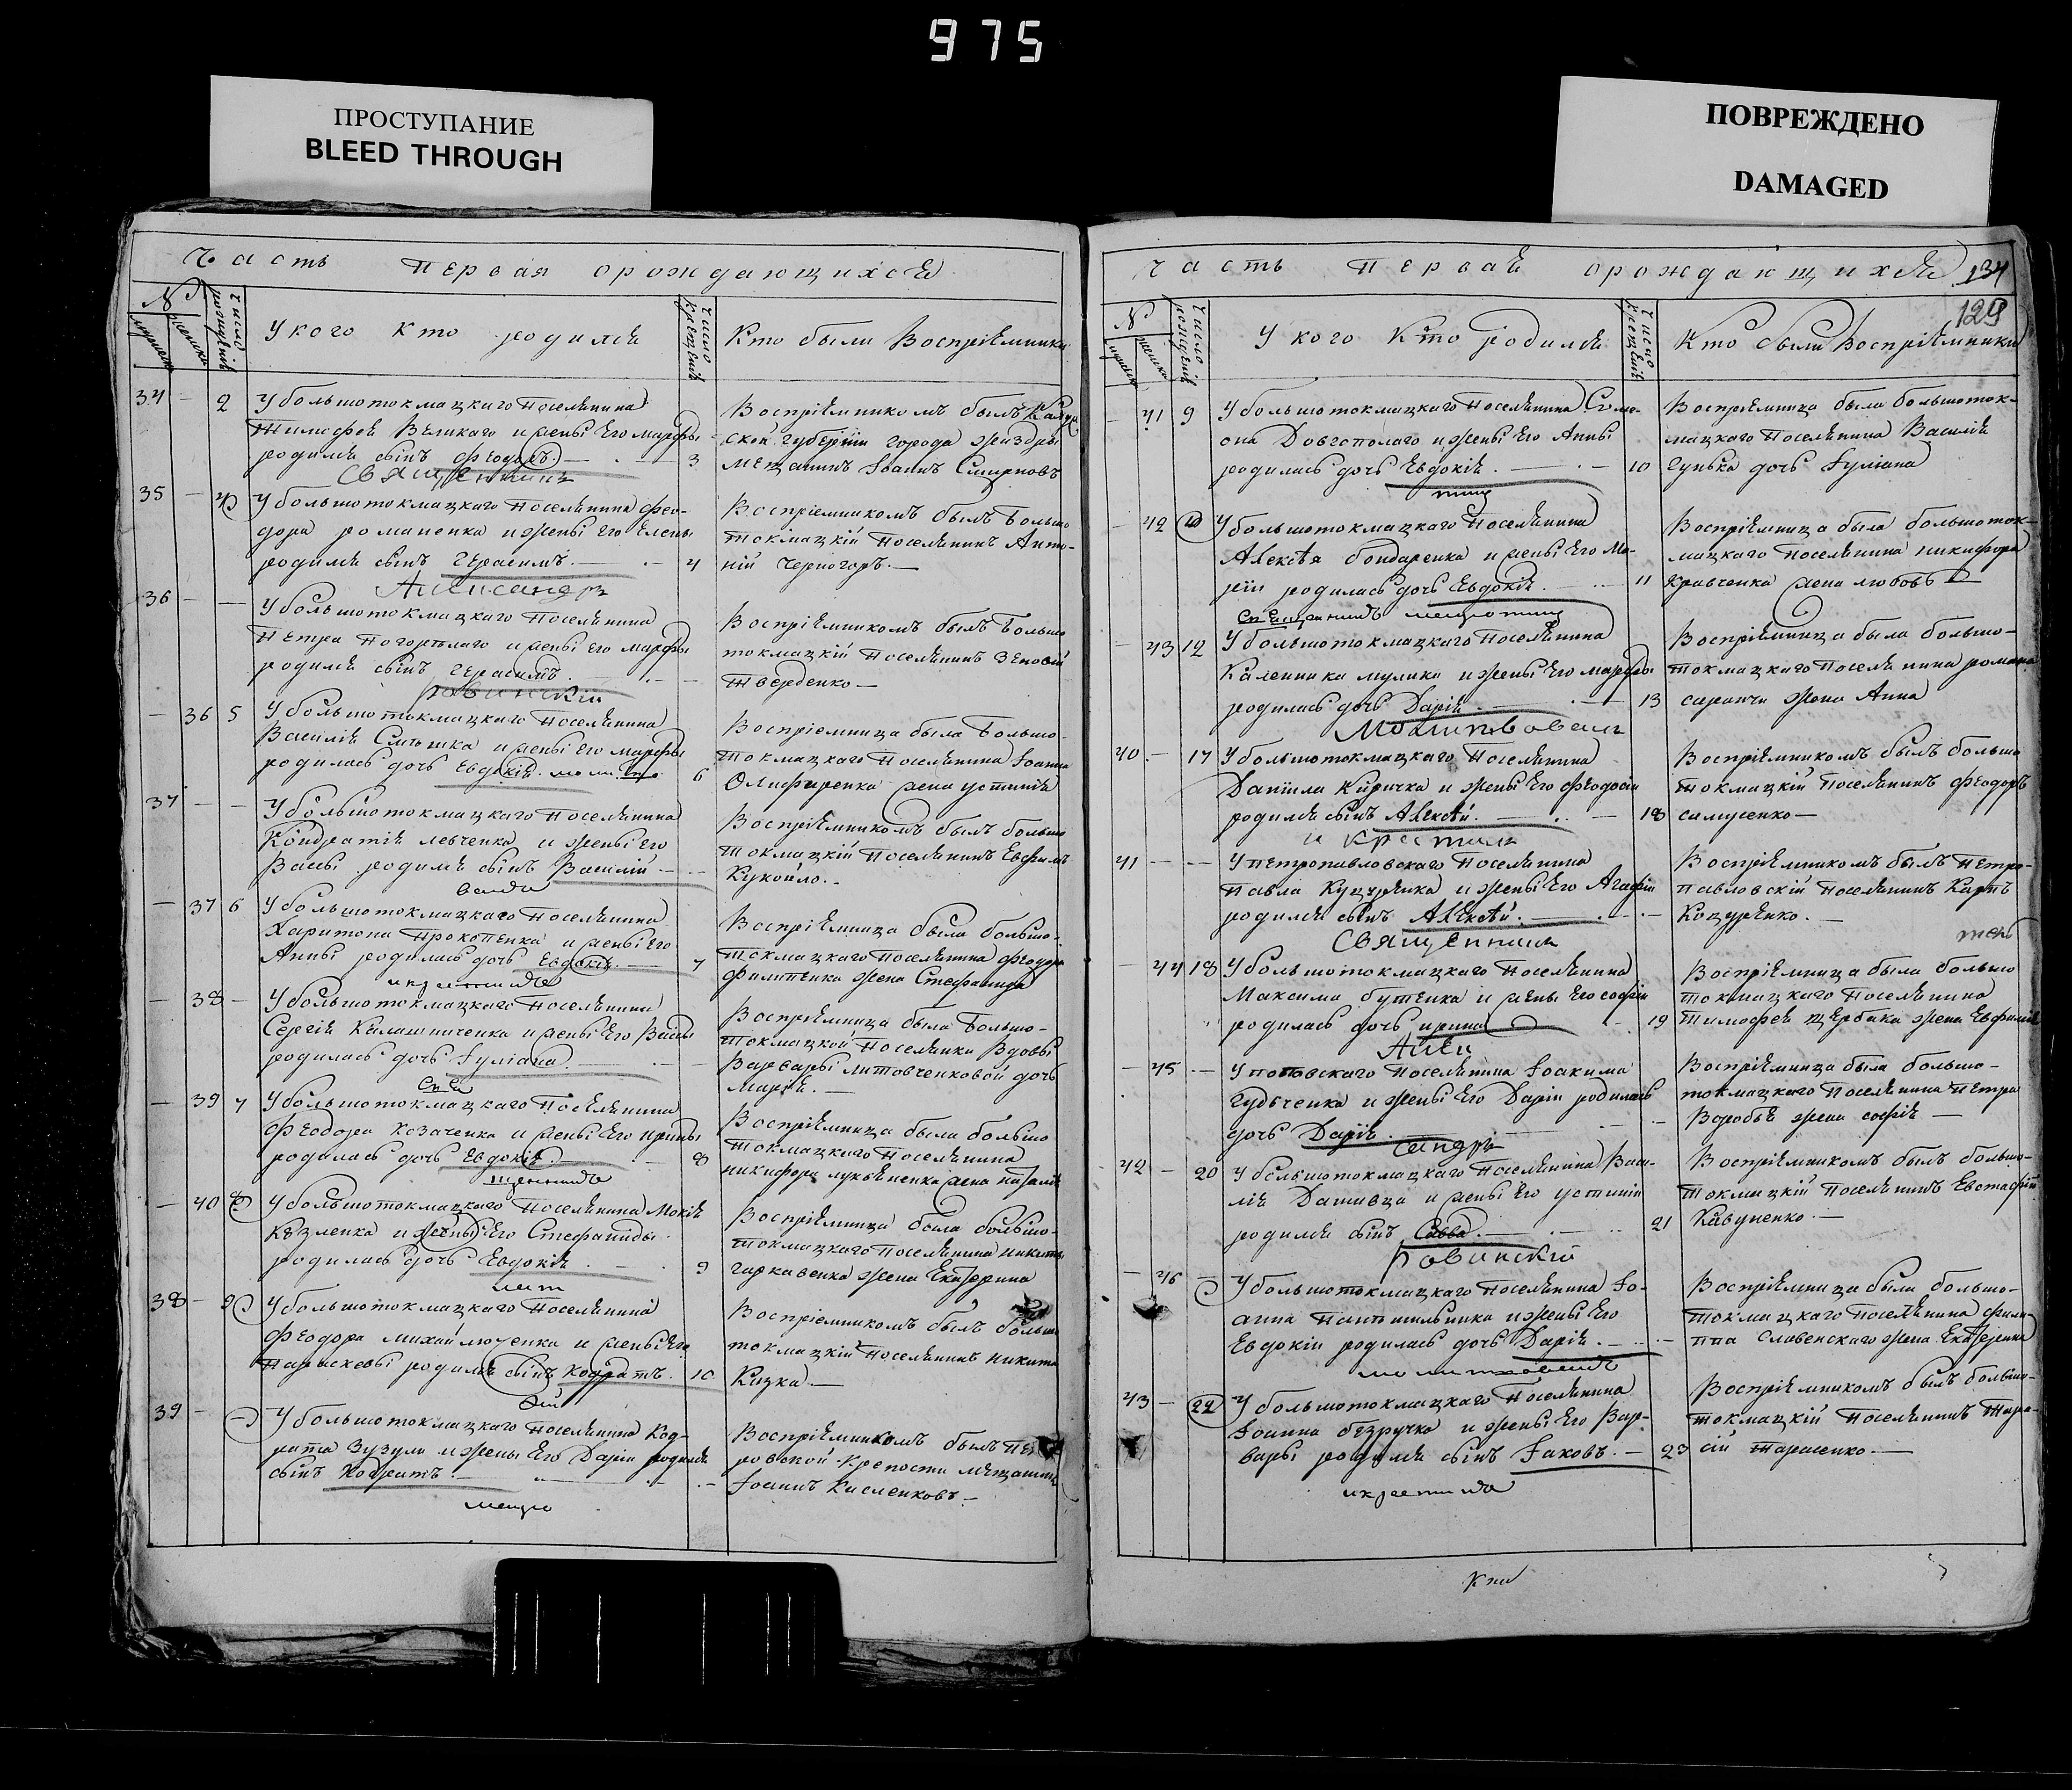 975
ПРОСТУПАНИЕ
BLEED THROUGH
ПОВРЕЖДЕНО
DAMAGED
Часть первая орождающихся
№
Число рождения
У кого кто родился
Число крещения
Кто были Воспріемники
34 - 2 У большотокмацкаго Поселянина
Тимофея Великаго и жены Его марфы
родился сынъ Феодоръ. 3
Воспріемникомъ былъ Калуж
ской губерніи города Жиздры
мещанинъ Іоаннъ Смирновъ
Священникъ
35 - 4 У большотокмацкаго Поселянина Фео-
дора романенка и жены Его Елены
родился сынъ Герасимъ. 4
Воспріемникомъ былъ Больше
токмацкій Поселянинъ Анто-
ній Черногоръ.
Александръ
36 - - У большотокмацкаго Поселянина
Петра Погорѣлаго и жены Его марфы
родился сынъ Герасимъ. -
Воспріемникомъ былъ Больше
токмацкій Поселянинъ Зеновій
Твербенко
Ровинскій
- 36 5 У большотокмацкаго Поселянина
Василія и жены Его марфы
родилась дочь Евдокія. 6
Воспріемница была Большо-
токмацкаго Поселянина Іоанна
Олифиренка жена устинія
37 - - У большотокмацкаго Поселянина
Кондратія левченка и жены Его
Вассы родился сынъ Василій -
Воспріемникомъ былъ больше
токмацкій Поселянинъ Евфимъ
Кукойло.
- 37 6 У большотокмацкаго Поселянина
Харитона Прокопенка и жены Его
Анны родилась дочь Евдокія. 7
Воспріемница была больше-
токмацкаго Поселянина Феодора
филипенка жена Стефанида
и крестилъ
- 38 - У большотокмацкаго Поселянина
Сергія Калашниченка и жены Его Вассы
родилась дочь Іуліана. -
Воспріемница была Больше-
токмацкой Поселянки Вдовы
Варвары литовченковой дочь
Марія.
- 39 7 У большотокмацкаго Поселянина
Феодора Козаченка и жены Его ирины
родилась дочь Евдокія. 8
Воспріемница была больше
токмацкаго Поселянина
никифора лукьяненка жена наталія
- 40 8 У большотокмацкаго Поселянина Мокія
и жены Его Стефаниды
родилась дочь Евдокія. 9
Воспріемница была больше-
токмацкаго Поселянина никиты
гаркавенка жена Екатерина
38 - 9 У большотокмацкаго Поселянина
Феодора михайлюченка и жены Его
Параскевы родился сынъ Кодратъ. 10
Воспріемникомъ былъ больше
токмацкій Поселянинъ никита
Кизка
39 - - У большотокмацкаго Поселянина Код-
рата Зузули и жены Его Даріи родился
сынъ Кодратъ. -
Воспріемникомъ былъ Пет
ровской крепости мещанинъ
Іоаннъ Кисленковъ
Часть Первая орождающихся
134
129
№
Число рождения
У кого Кто родился
Число крещения
Кто были Воспріемники
- 41 9 У большотокмацкаго Поселянина Симе-
она Довгополаго и жены Его Анны
родилась дочь Евдокія. 10
Воспріемница была большоток-
мацкаго Поселянина Василія
Гунька дочь Іуліана
- 42 10 У большотокмацкаго Поселянина
Алексѣя бондаренка и жены Его Ма-
ріи родилась дочь Евдокія. 11
Воспріемница была большоток-
мацкаго Поселянина никифора
Кравченка жена любовь
- 43 12 У большотокмацкаго Поселянина
Каленика мулики и жены Его марфы
родилась дочь Дарія. 13
Воспріемница была больше-
токмацкаго Поселянина романа
саранчи жена Анна
Молитвовалъ
40 - 17 У большотокмацкаго Поселянина
Даніила Киричка и жены Его Феодосіи
родился сынъ Алексѣй. 18
Воспріемникомъ былъ больше
токмацкій Поселянинъ Феодоръ
самусенко
и крестилъ
41 - - У петропавловскаго Поселянина
Павла Куцуренка и жены Его Агафіи
родился сынъ Алексѣй. -
Воспріемникомъ былъ Петро-
павловскій Поселянинъ Карпъ
Коцуренко.
Священникъ
- 44 18 У большотокмацкаго Поселянина
Максима бутенка и жены Его софіи
родилась дочь ирина 19
Воспріемница была больше
токмацкаго Поселянина
Тимофея Щербака жена Евфимія
Алек
- 45 - У поповскаго Поселянина Іоакима
Гудыченка и жены Его Даріи родилась
дочь Дарія. -
Воспріемница была больше-
токмацкаго Поселянина Петра
Воробья жена софія
сандръ
42 - 20 У большотокмацкаго Поселянина Васи-
лія Дашивца и жены Его устиніи
родился сынъ Савва. 21
Воспріемникомъ былъ больше-
токмацкій Поселянинъ Евстафій
Кавуненко.
Ровинскій
- 46 - У большотокмацкаго Поселянина Іо-
анна и жены Его
Евдокіи родилась дочь Дарія. -
Воспріемница была больше-
токмацкаго Поселянина фили-
ппа Славенскаго жена Екатерина
молитвовалъ
43 - 22 У большотокмацкаго Поселянина
Іоанна безручка и жены Его Вар-
вары родился сынъ Іаковъ. 23
Воспріемникомъ былъ больше-
токмацкій Поселянинъ Тара-
сій Тарасенко.
и крестилъ